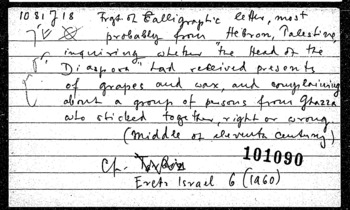 10 81 J 18 Frgt of Calligraphic letter, most
probably from Hebron, Palestine,
inquiring whether "the Head of the
Diaspora" had received presents
of grapes and wax, and complaining
about a group of persons from Ghazza
who sticked together, right or wrong
(Middle of eleventh century)
101090
Cf.
Erets Israel 6 (1960)